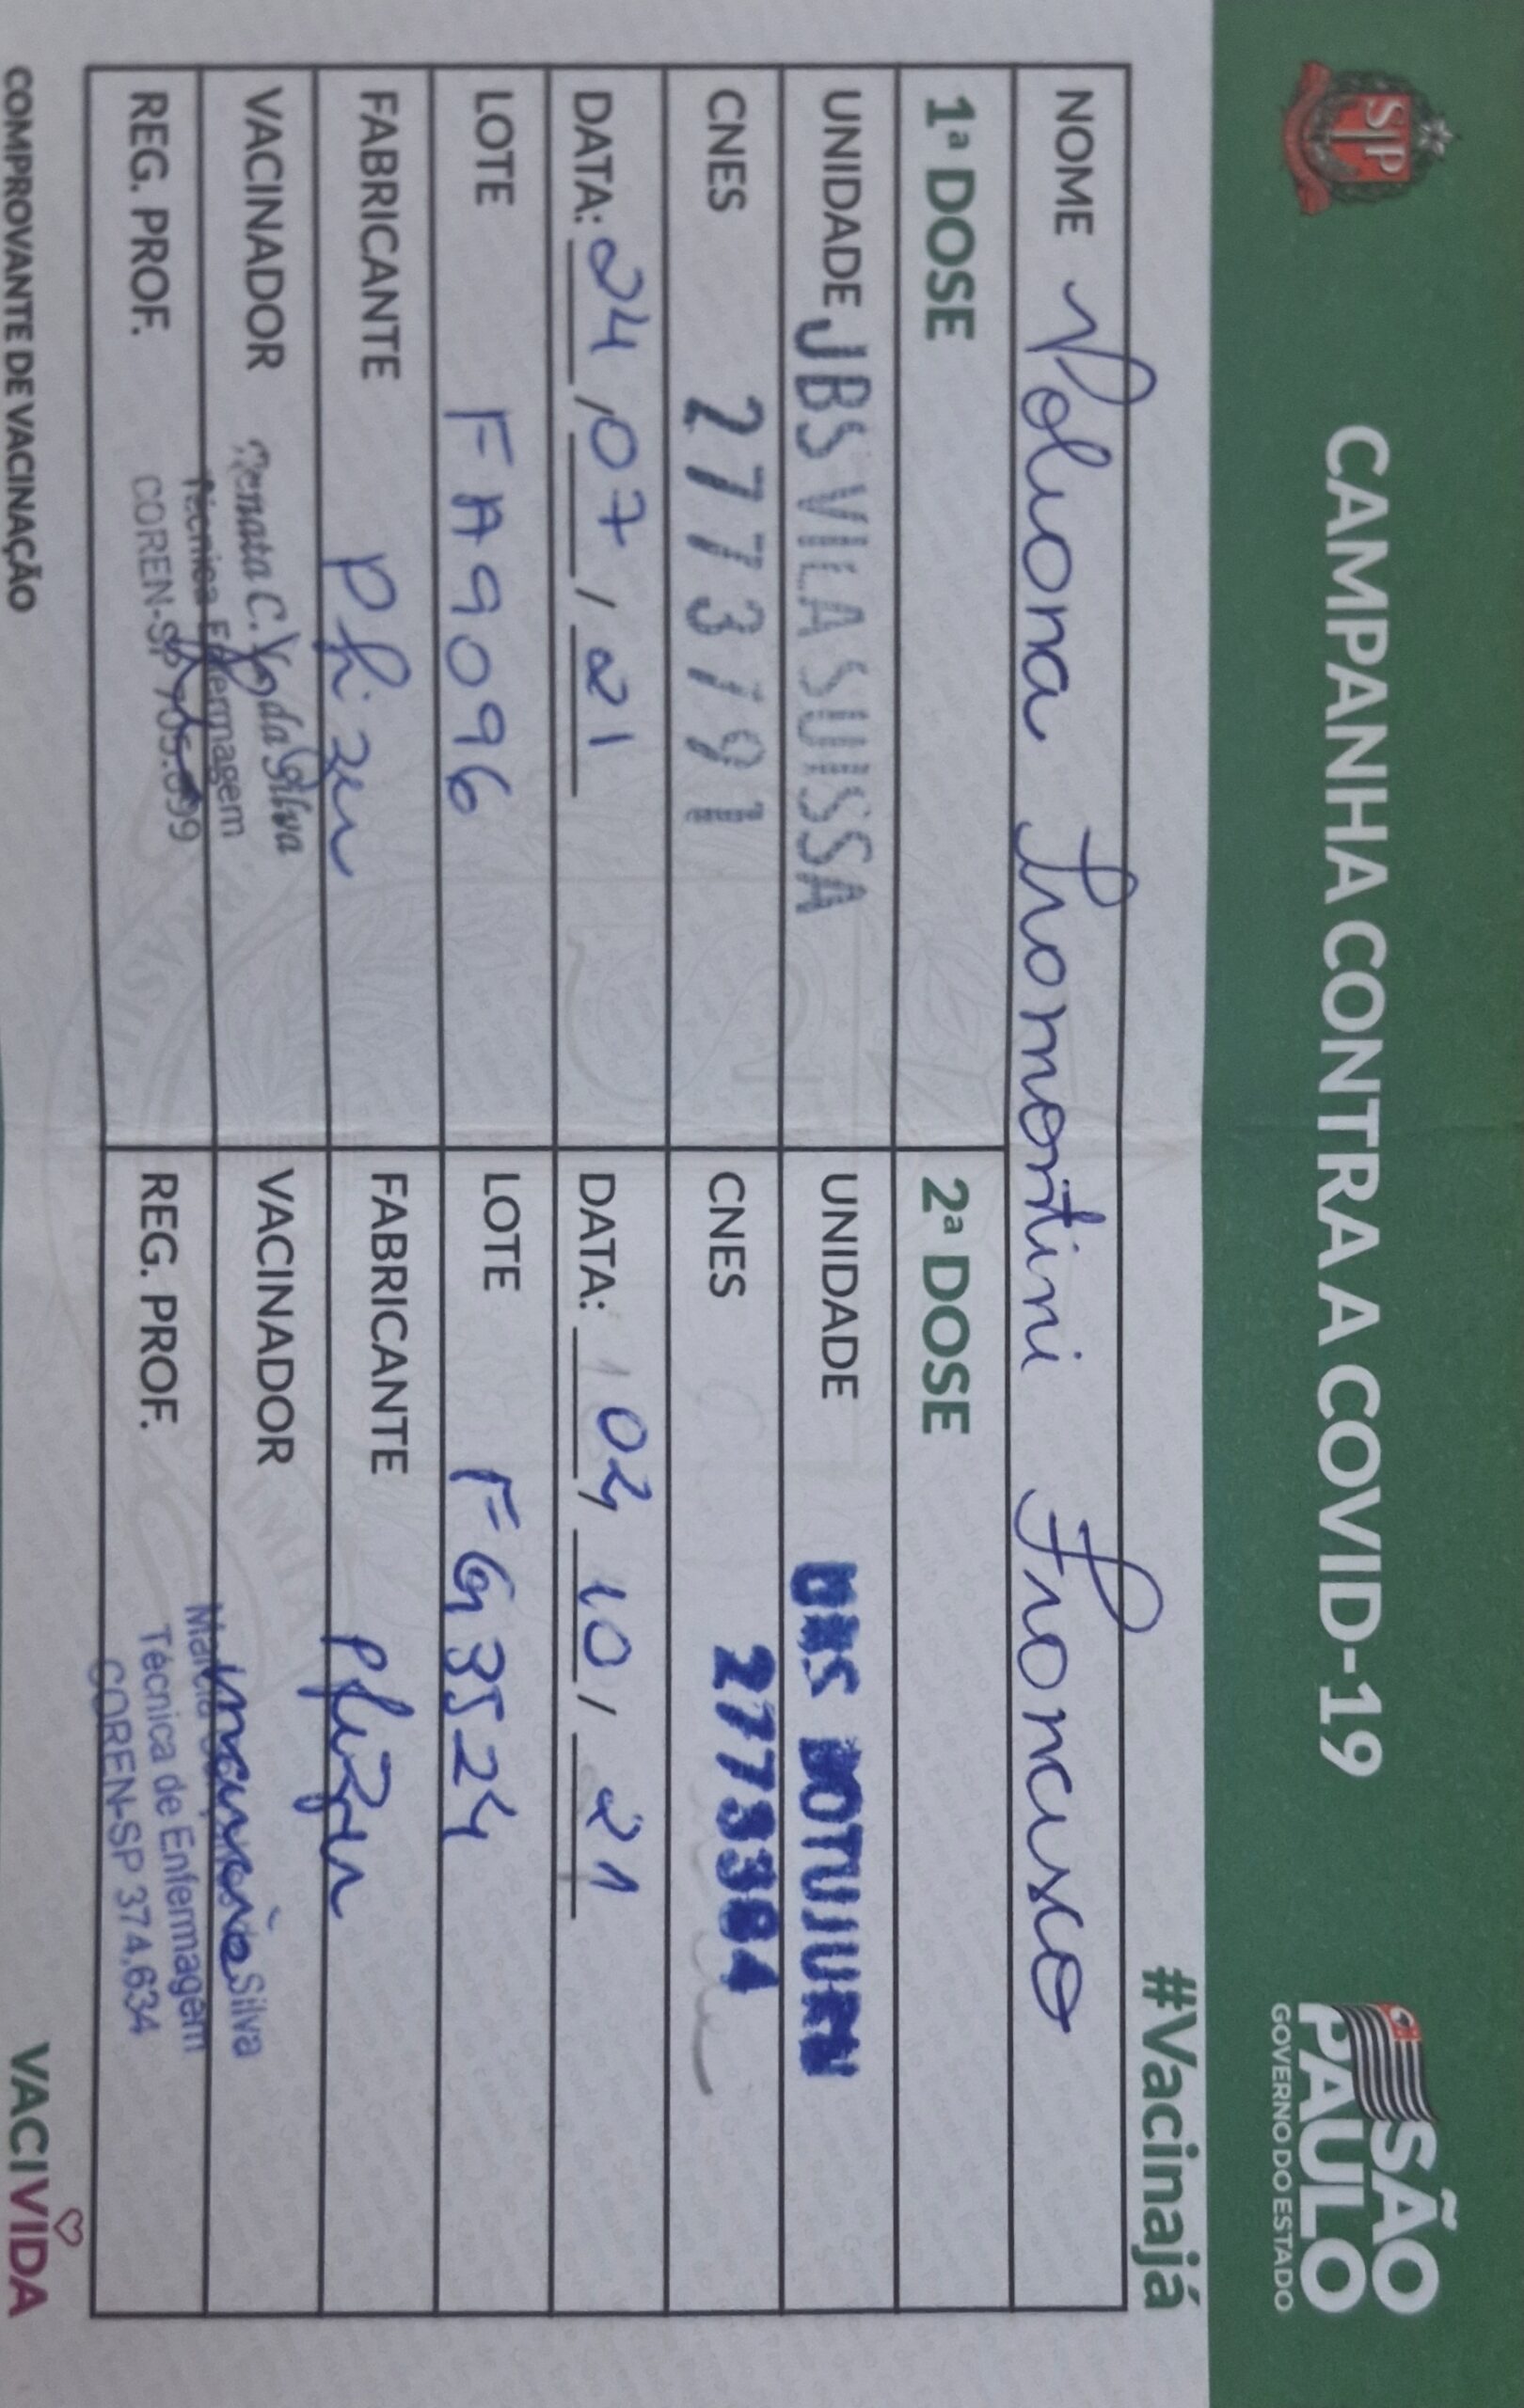 CAMPANHA CONTRA A COVID-19
SP
SÃO PAULO
GOVERNO DO ESTADO
#Vacinajá
NOME Poliana Tramontini Francisco
1ª DOSE
UNIDADE UBS VILA SUISSA
CNES 2773791
DATA: 24/07/21
LOTE FA9096
FABRICANTE Phizer
VACINADOR Renata C. da Silva
Técnica Enfermagem
REG. PROF. COREN-SP 705.699
2ª DOSE
UNIDADE UBS BOTUJURU
CNES 2773384
DATA: 04/10/21
LOTE FG3524
FABRICANTE Phizer
VACINADOR Silva
Técnica de Enfermagem
REG. PROF. COREN-SP 374.634
COMPROVANTE DE VACINAÇÃO
VACIVIDA